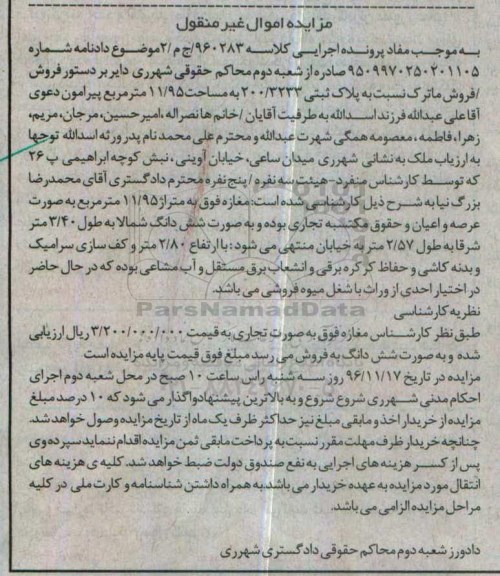 مزایده اموال غیر منقول
به موجب مفاد پرونده اجرایی کلاسه ۹۶۰۲۸۳/ج م /۲موضوع دادنامه شماره
۹۵۰۹۹۷۰۲۵۰۲۰۱۱۰۵ صادره از شعبه دوم محاکم حقوقی شهرری دایر بر دستور فروش
/فروش ماترک نسبت به پلاک ثبتی ۲۰۰/۳۲۳۳ به مساحت ۱۱/۹۵ متر مربع پیرامون دعوی
آقا علی عبدالله فرزند اسدالله به طرفیت آقایان /خانم ها نصراله ،امیرحسین، مرجان، مریم،
زهرا، فاطمه ، معصومه همگی شهرت عبدالله و محترم علی محمد نام پدر ورثه اسدالله توجها
به ارزیاب ملک به نشانی شهرری میدان ساعی، خیابان آوینی ، نبش کوچه ابراهیمی پ ۲۶
که توسط کارشناس منفرد-هیئت سه نفره / پنج نفره محترم دادگستری آقای محمدرضا
بزرگ نیا به شرح ذیل کارشناسی شده است: مغازه فوق به متراژ ۱۱/۹۵ متر مربع به صورت
عرصه و اعیان و حقوق مکتسبه تجاری بوده و به صورت شش دانگ شمالا به طول ۳/۴۰ متر
شرقا به طول ۲/۵۷ متر به خیابان منتهی می شود : با ارتفاع ۲/۸۰ متر و کف سازی سرامیک
و بدنه کاشی و حفاظ کرکره برقی و انشعاب برق مستقل و آب مشاعی بوده که در حال حاضر
در اختیار احدی از وراث با شغل میوه فروشی می باشد.
نظریه کارشناسی
طبق نظر کارشناس مغازه فوق به صورت تجاری به قیمت ۳/۲۰۰/۰۰۰/۰۰۰ ریال ارزیابی
شده و به صورت شش دانگ به فروش می رسد مبلغ فوق قیمت پایه مزایده است
مزایده در تاریخ ۹۶/۱۱/۱۷ روز سه شنبه راس ساعت ۱۰ صبح در محل شعبه دوم اجرای
احکام مدنی شهرری شروع شروع و به بالاترین پیشنهاد واگذار می شود که ۱۰ درصد مبلغ
مزایده از خریدار اخذ و مابقی مبلغ نیز حداکثر ظرف یک ماه از تاریخ مزایده وصول خواهد شد.
چنانچه خریدار ظرف مهلت مقرر نسبت به پرداخت مابقی ثمن مزایده اقدام ننماید سپرده وی
پس از کسر هزینه های اجرایی به نفع صندوق دولت ضبط خواهد شد. کلیه ی هزینه های
انتقال مورد مزایده به عهده خریدار می باشد.به همراه داشتن شناسنامه و کارت ملی در کلیه
مراحل مزایده الزامی می باشد.
دادورز شعبه دوم محاکم حقوقی دادگستری شهرری
ParsNamadData